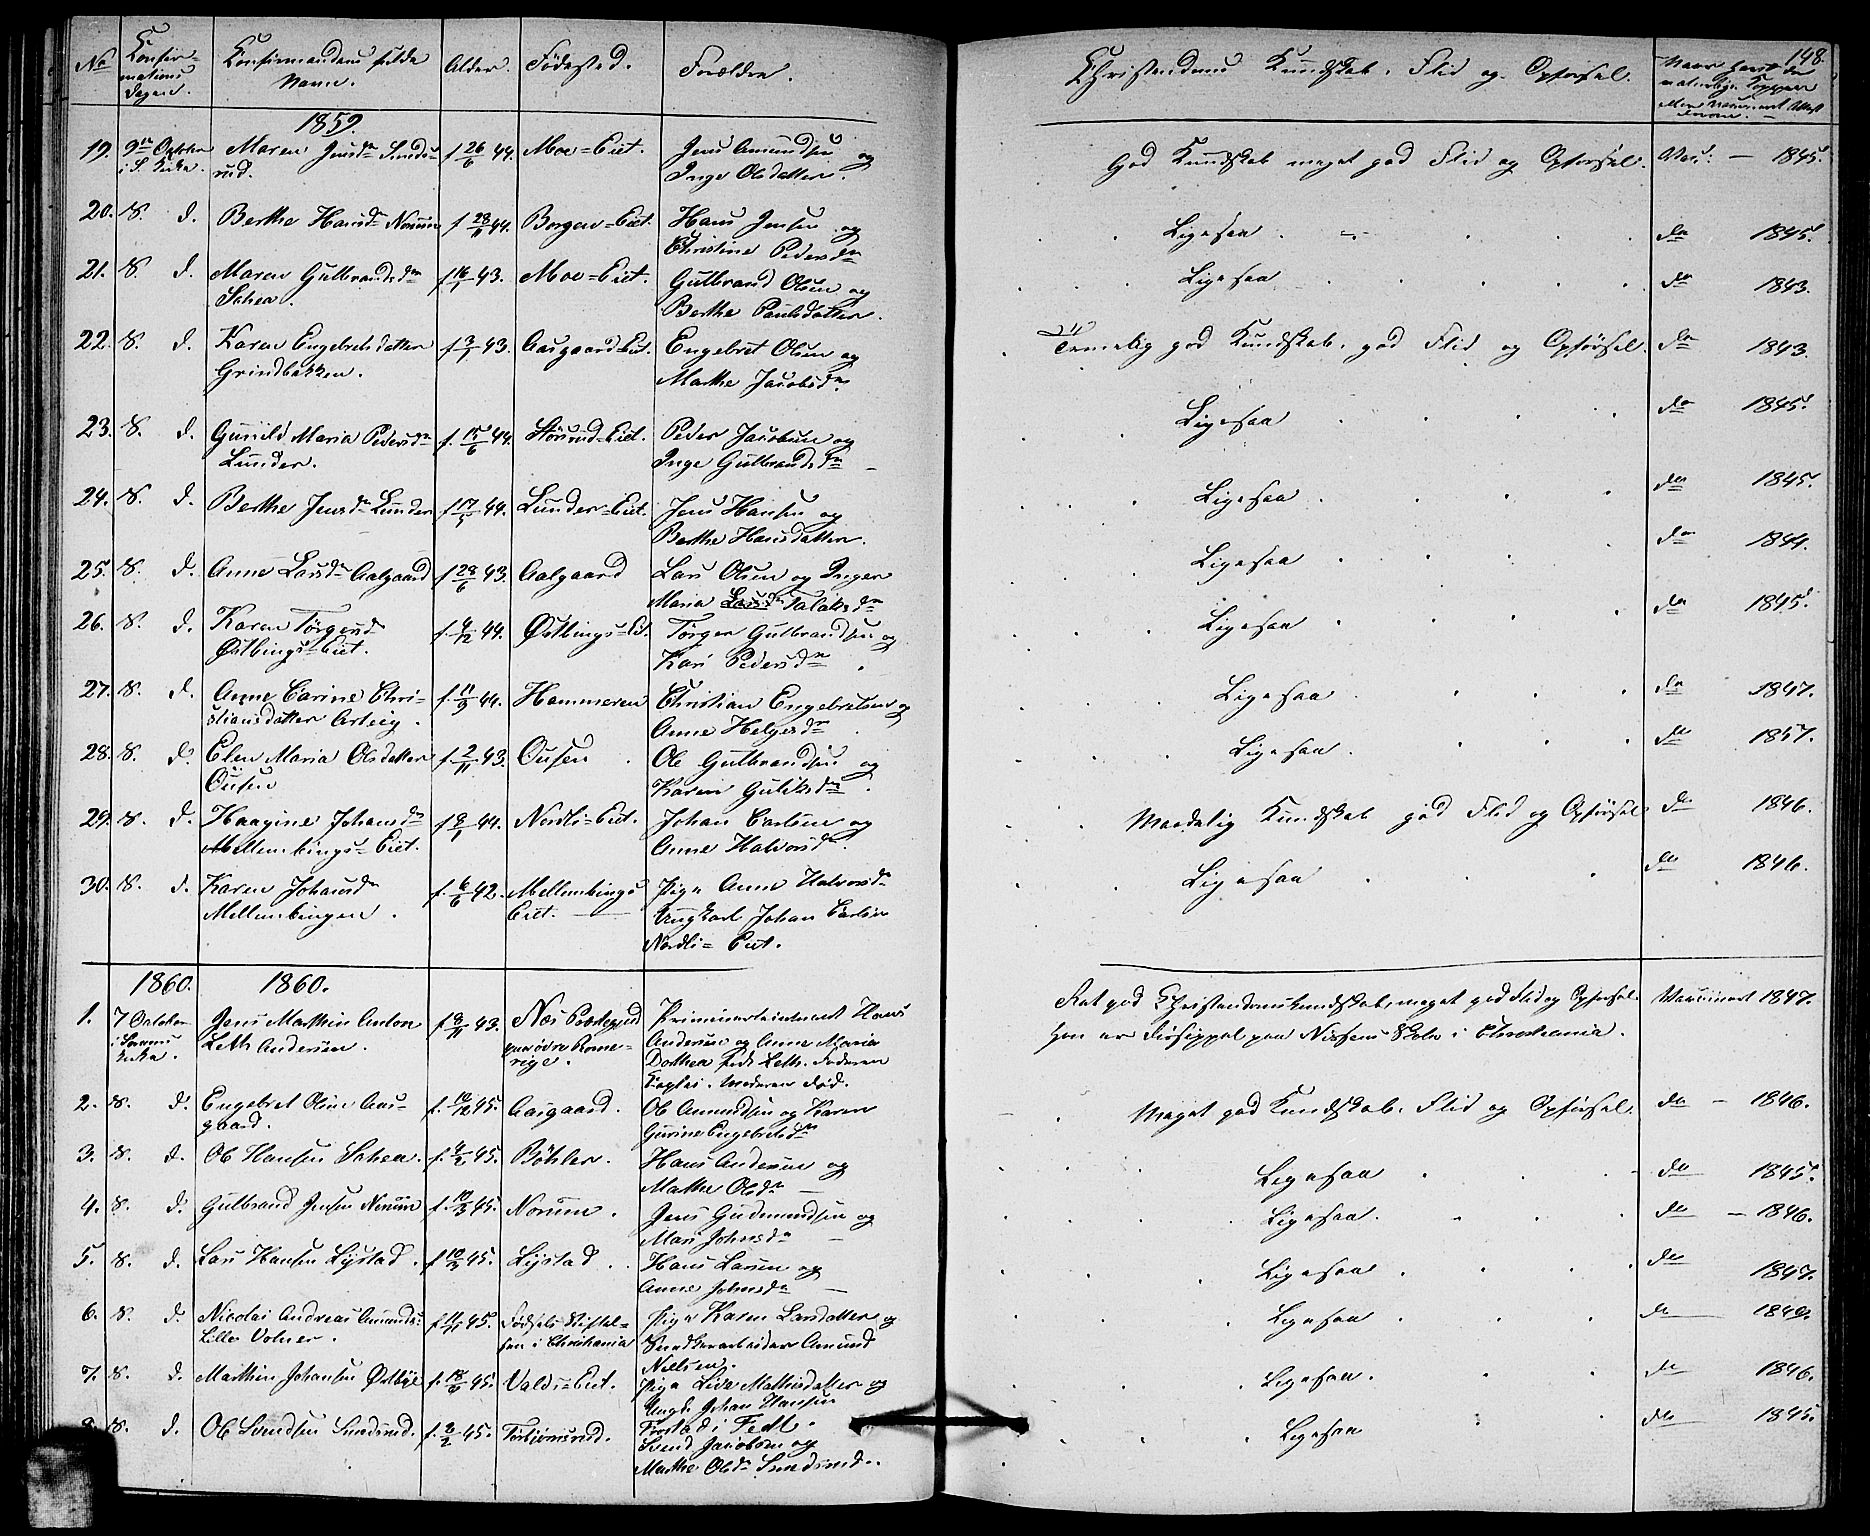 No
Konfir-
mations
dagen.
Konfirmandens fulde
Navn.
Alder.
Fødested.
Forældre.
Christendoms Kundskab. Flid og Opførsel.
148.
1859.
19. 9de October i S. Kirke. Maren Jensdr Smedsrud. f 26/6 44. Moe-Eiet. Jens Amundsen og
Inger Olsdatter. God Kundskab meget god Flid og Opførsel. Vac: — 1845.
20. S. d. Berthe Hansdr Norum f 28/11 44. Borgen-Eiet. Hans Jensen og
Christine Pedersdr Ligesaa do 1845.
21. S. d. Maren Gulbrandsdr f 16/1 43. Moe-Eiet. Gulbrand Olsen og
Schea. Berthe Paulsdatter. Ligesaa do 1843.
22. S. d. Karen Engebretsdatter f 3/1 43. Aasgaard-Eiet. Engebret Olsen og
Grindbakken. Marthe Jacobsdr Temmelig god Kundskab. god Flid og Opførsel. do 1843.
23. S. d. Gunild Maria Pedersdr f. 15/6 44. Størrud-Eiet. Peder Jacobsen og
Lunder. Inge Gulbrandsdr Ligesaa do 1845.
24. S. d. Berthe Jensdr Lunder f 17/5 44. Lunder-Eiet. Jens Hansen og
Berthe Hansdatter. Ligesaa do 1845.
25. S. d. Anne Larsdr Aalgaard f 28/6 43. Aalgaard Lars Olsen og Inger
Maria Larsdr Talaksdr Ligesaa do 1844.
26. S. d. Karen Törgersd f. 4/12 44. Østbings-Ei. Törger Gulbrandsen og
Østbings-Eiet. Kari Pedersdr Ligesaa do 1845.
27. S. d. Anne Carine Chri- f. 11/9 44. Hammeren Christian Engebretsen og
stiansdatter Arteig. Anne Helgesdr Ligesaa do 1847.
28. S. d. Elen Maria Olsdatter f 2/11 43. Ousen Ole Gulbrandsen og
Ousen Karen Guliksdr. Ligesaa do 1857.
29. S. d. Haagine Johansdr f 8/1 44. Nordli-Eiet. Johan Carlsen og
Mellembings-Eiet. Anne Halvorsdr. Maadelig Kundskab god Flid og Opførsel do 1846.
30. S. d. Karen Johansdr f. 6/6 42. Mellembings Pige Anne Halvorsdr
Mellembingen. Eiet. Ungkarl Johan Carlsen
Nordli-Eiet. Ligesaa do 1846.
1860. 1860.
1. 7 October Jens Marthin Anton f 8/11 43. Næs Præstegjeld Premierleitenant Hans
Leth Andersen. øvre Rome- Andersen og Anne Maria
rige. Dorthea født Leth. Faderen
Moderen død.
Ret god Christendomskundskab, meget god Flid og Opførsel. Vaccineret 1847.
Han er Discippel paa Nissens Skole i Christiania.
2. S. d. Engebret Olsen Aas- f. 10/12 45. Aasgaard. Ole Amundsen og Karen
gaard. Gurine Engebretsdr Meget god Kundskab. Flid og Opførsel. do — 1846.
3. S. d. Ole Hansen Schea. f. 4/2 45. Böhler. Hans Andersen og
Mathe Olsdr Ligesaa do 1845.
4. S. d. Gulbrand Jensen Norum f. 10/3 45. Norum. Jens Gudmundsen og
Mari Johnsdr Ligesaa. do — 1846.
5. S. d. Lars Hansen Lystad. f 10/3 45. Lystad. Hans Larsen og
Anne Johnsdr Ligesaa do 1847.
6. S. d. Nicolai Andreas Amunds: f 11/11 45. Fødsels Stiftel- Pige Karen Larsdatter og
Lille Volner. sen i Christiania Amund
Nielsen. Ligesaa do 1849.
7. S. d. Marthin Johansen Østbye f. 18/6 45. Valds-Eiet. Pige Live Mathisdatter og
Ungk. Johan Hansen
Ligesaa. do 1846.
8. S. d. Ole Svendsen Smedsrud. f. 2/2 45. Torbjørnsrud. Svend Jacobsen og
Marthe Olsdr Smedsrud. Ligesaa do 1845.